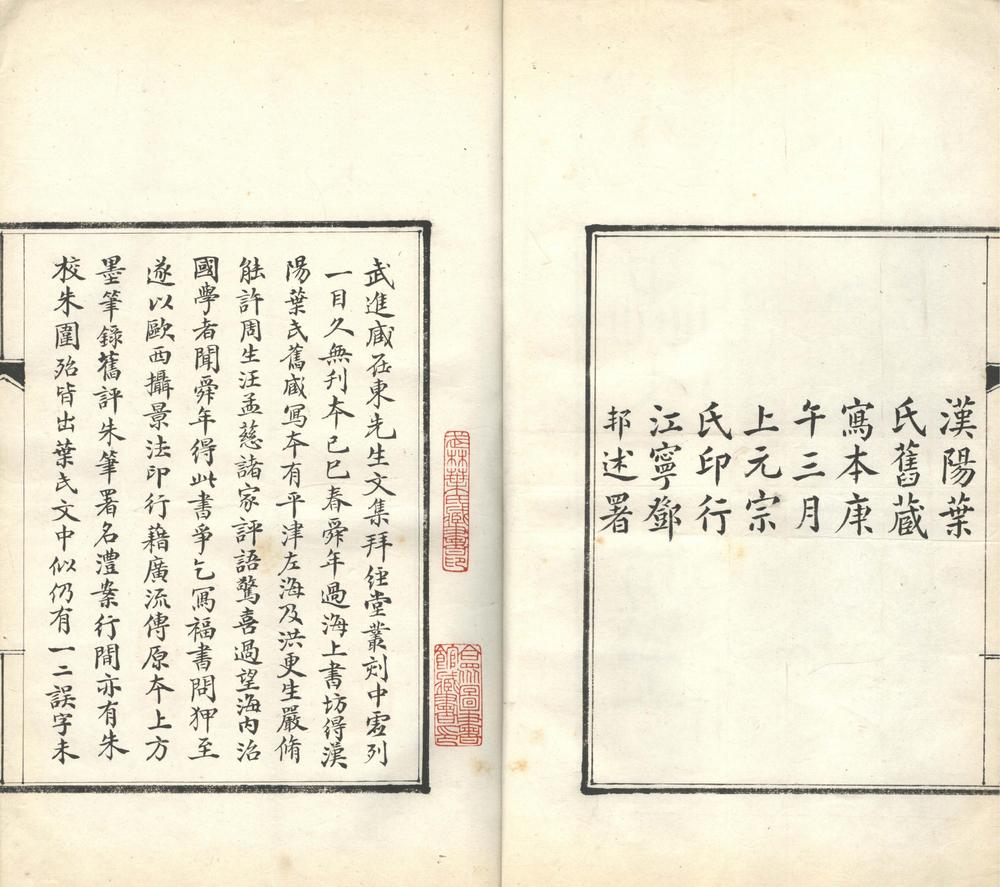 漢陽葉
氏舊藏
寫本庚
午三月
上元宗
氏印行
江寧鄧
邦述署
武進臧在東先生文集拜經堂叢刻中虛列
一目久無刋本己巳春舜年過海上書坊得漢
陽葉氏舊臧寫本有平津左海及洪更生嚴脩
能許周生汪孟慈諸家評語驚喜過望海内治
國學者聞舜年得此書爭乞寫福書問狎至
遂以歐西攝景法印行藉廣流傳原本上方
墨筆錄舊評朱筆署名澧案行間亦有朱
校朱圍殆皆出葉氏文中似仍有一二誤字未
武林葉氏藏書印